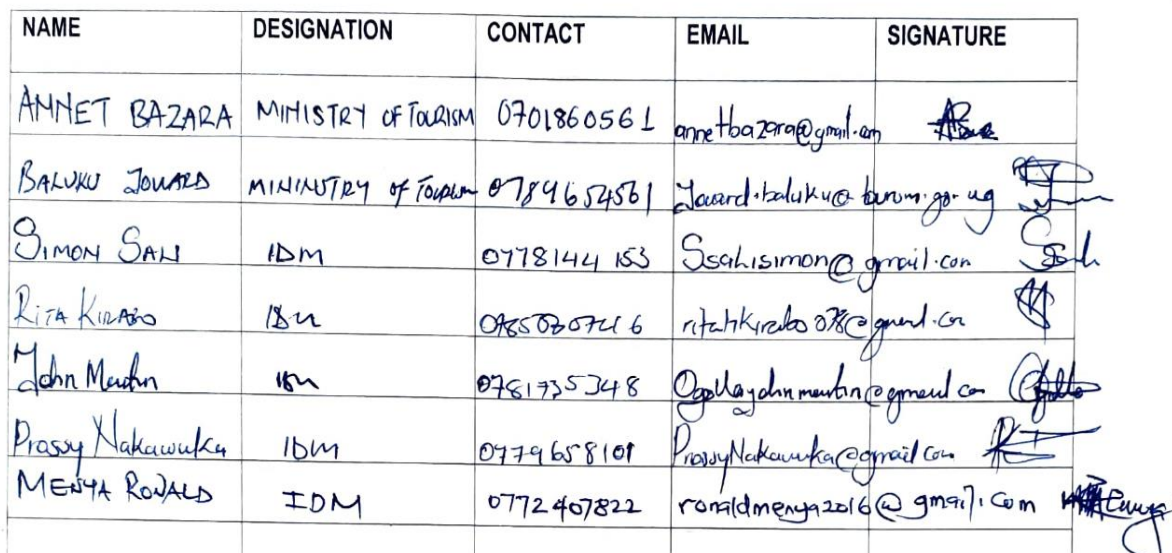 NAME DESIGNATION CONTACT EMAIL SIGNATURE
ANNET BAZARA MINISTRY OF TOURISM 0701860561 annetbazara@gmail.com
BALUKU JOWARD MININUTRY of Tourism 0789654561 Joward.baluku@tourism.go.ug
SIMON SALI IDM 0778144153 Ssalisimon@gmail.com
RITA KIRABO IDM
John Martin IDM 0781735348
Prossy Nakawuka IDM 0779658101 ProssyNakawuka@gmail.com
MENYA RONALD IDM 0772407822 ronaldmenya2016@gmail.com